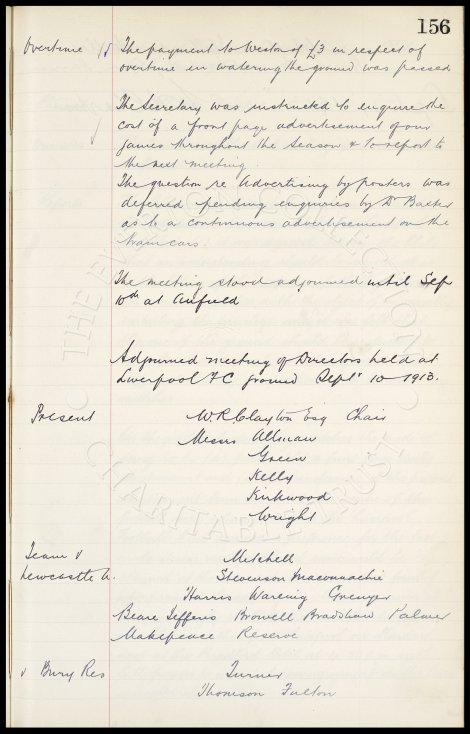 156
Overtime The payment to Weston of £3 in respect of
overtime in watering the ground was passed
The Secretary was instructed to enquire the
cost of a front page advertisement of our
games throughout the Season & to report to
the next meeting.
The question re Advertising by posters was
deferred pending enquiries by Dr Baxter
as to a continuous advertisement on the
tram cars.
The meeting stood adjourned until Sep
10th at Anfield
Adjourned meeting of Directors held at
Liverpool FC ground Septr 10 1913.
Present W.R. Clayton Esq Chair
Messrs Allman
Green
Kelly
Kirkwood
Wright
Team v Mitchell
Newcastle U. Stevenson Maconnachie
Harris Wareing Grenyer
Beare Jefferis Browell Bradshaw Palmer
Makepeace Reserve
v Bury Res Turner
Thomson Fulton
THE EVERTON COLLECTION
CHARITABLE TRUST